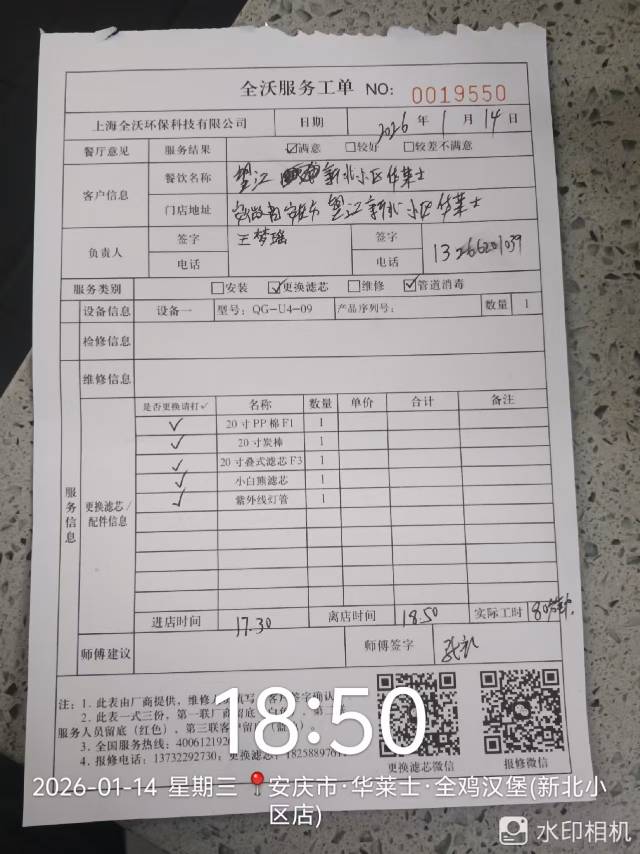 全沃服务工单 NO: 0019550
上海全沃环保科技有限公司 日期 2026年1月14日
餐厅意见 服务结果 ☑满意 □较好 □较差不满意
客户信息 餐饮名称 望江 新北小区华莱士
门店地址 安徽省安庆市望江新北小区华莱士
负责人 签字 王梦瑶 签字
电话 电话 13266201039
服务类别 □安装 ☑更换滤芯 □维修 ☑管道消毒
设备信息 设备一 型号：QG-U4-09 产品序列号： 数量 1
检修信息
维修信息
服务信息
更换滤芯/配件信息
是否更换请打✓ 名称 数量 单价 合计 备注
✓ 20寸PP棉F1 1
✓ 20寸炭棒 1
✓ 20寸叠式滤芯F3 1
✓ 小白熊滤芯 1
✓ 紫外线灯管 1
进店时间 17.30 离店时间 18.50 实际工时 80分钟
师傅建议 师傅签字
注：1. 此表由厂商提供，维修人 填写 客户签字确认
2. 此表一式三份，第一联厂商留底（白色），第二联
服务人员留底（红色），第三联客户留底
3. 全国服务热线：400612192
4. 报修电话：13732292730；更换滤芯：1825889761
更换滤芯微信 报修微信
18:50
2026-01-14 星期三 安庆市·华莱士·全鸡汉堡(新北小
区店)
水印相机